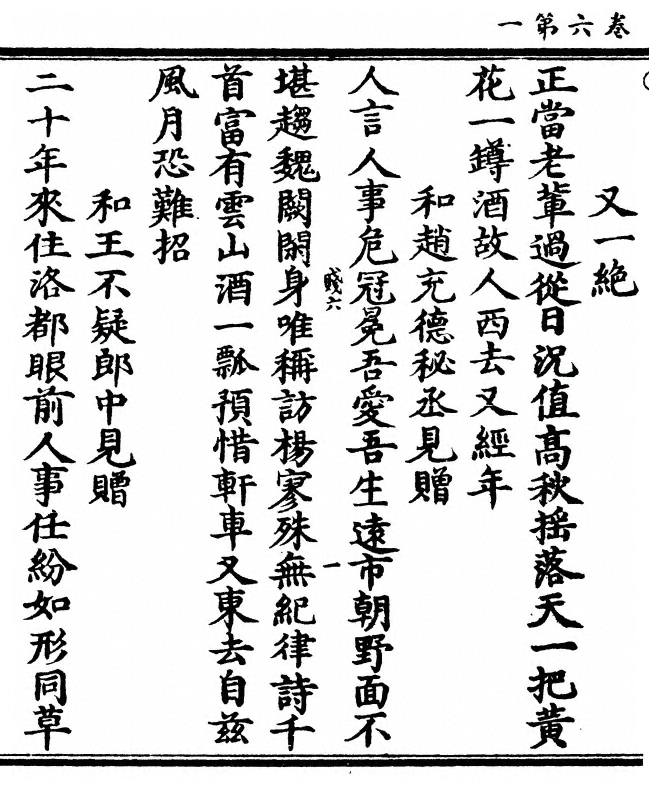 卷六第一
又一絶
正當老軰過從日況值髙秋揺落天一把黄
花一鐏酒故人西去又經年
和趙充德秘丞見贈
人言人事危冠冕吾愛吾生遠市朝野面不
一
賤六
堪趨魏闕閑身唯稱訪楊寥殊無紀律詩千
首富有雲山酒一瓢預惜軒車又東去自兹
風月恐難招
和王不疑郎中見贈
二十年來住洛都眼前人事任紛如形同草